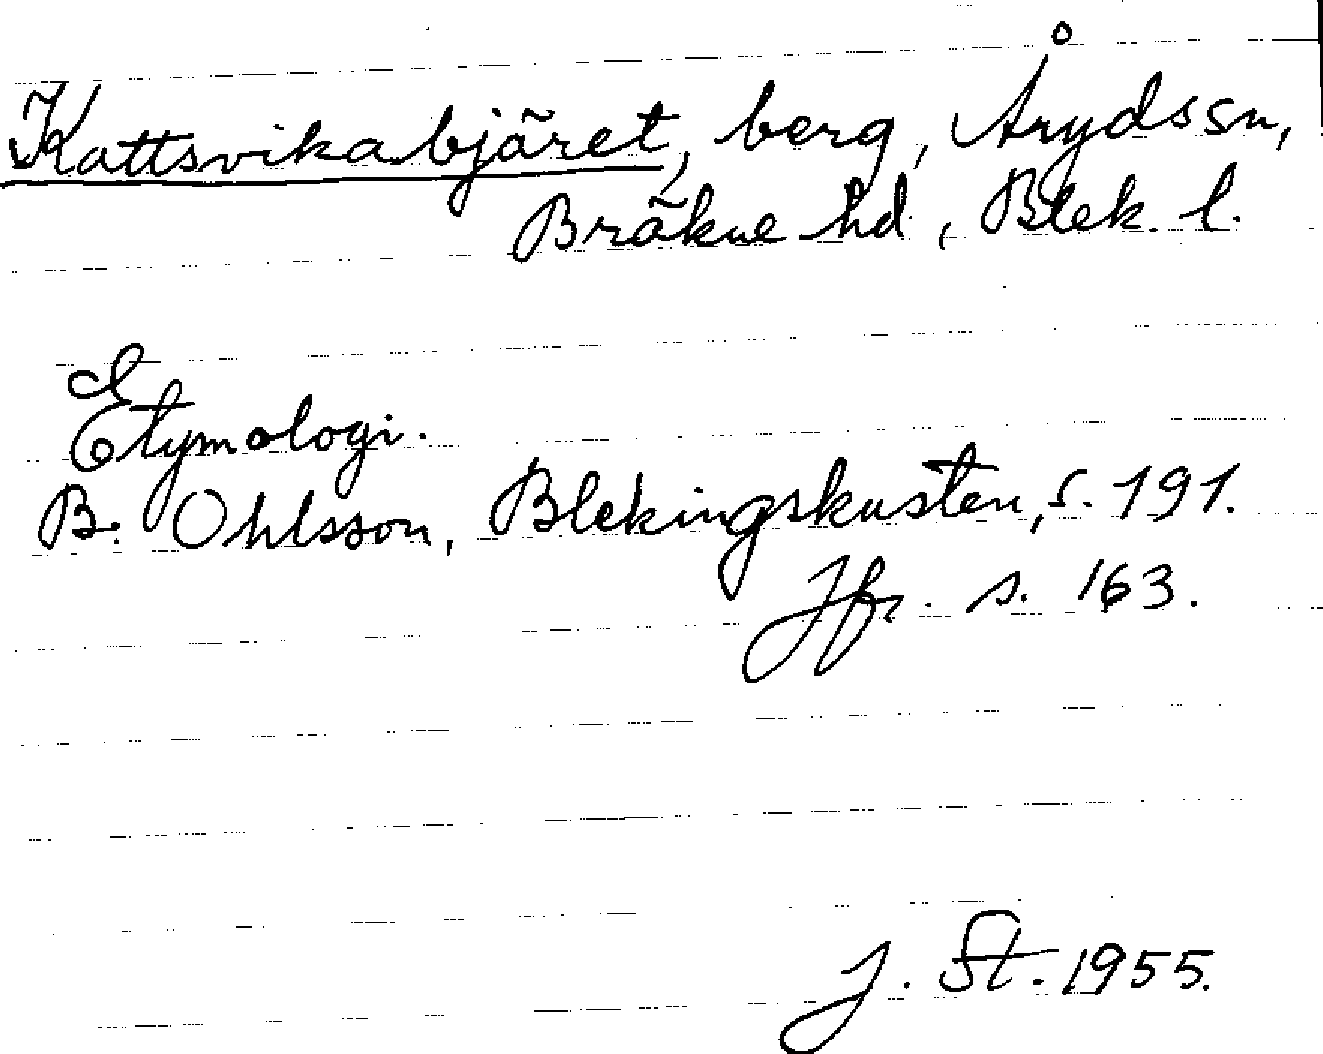 Kattsvikabjäret, berg, Åryds sn,
Bräkne hd, Blek. l.
Etymologi.
B. Ohlsson, Blekingskusten, s. 191.
Jfr. s. 163.
J. St. 1955.